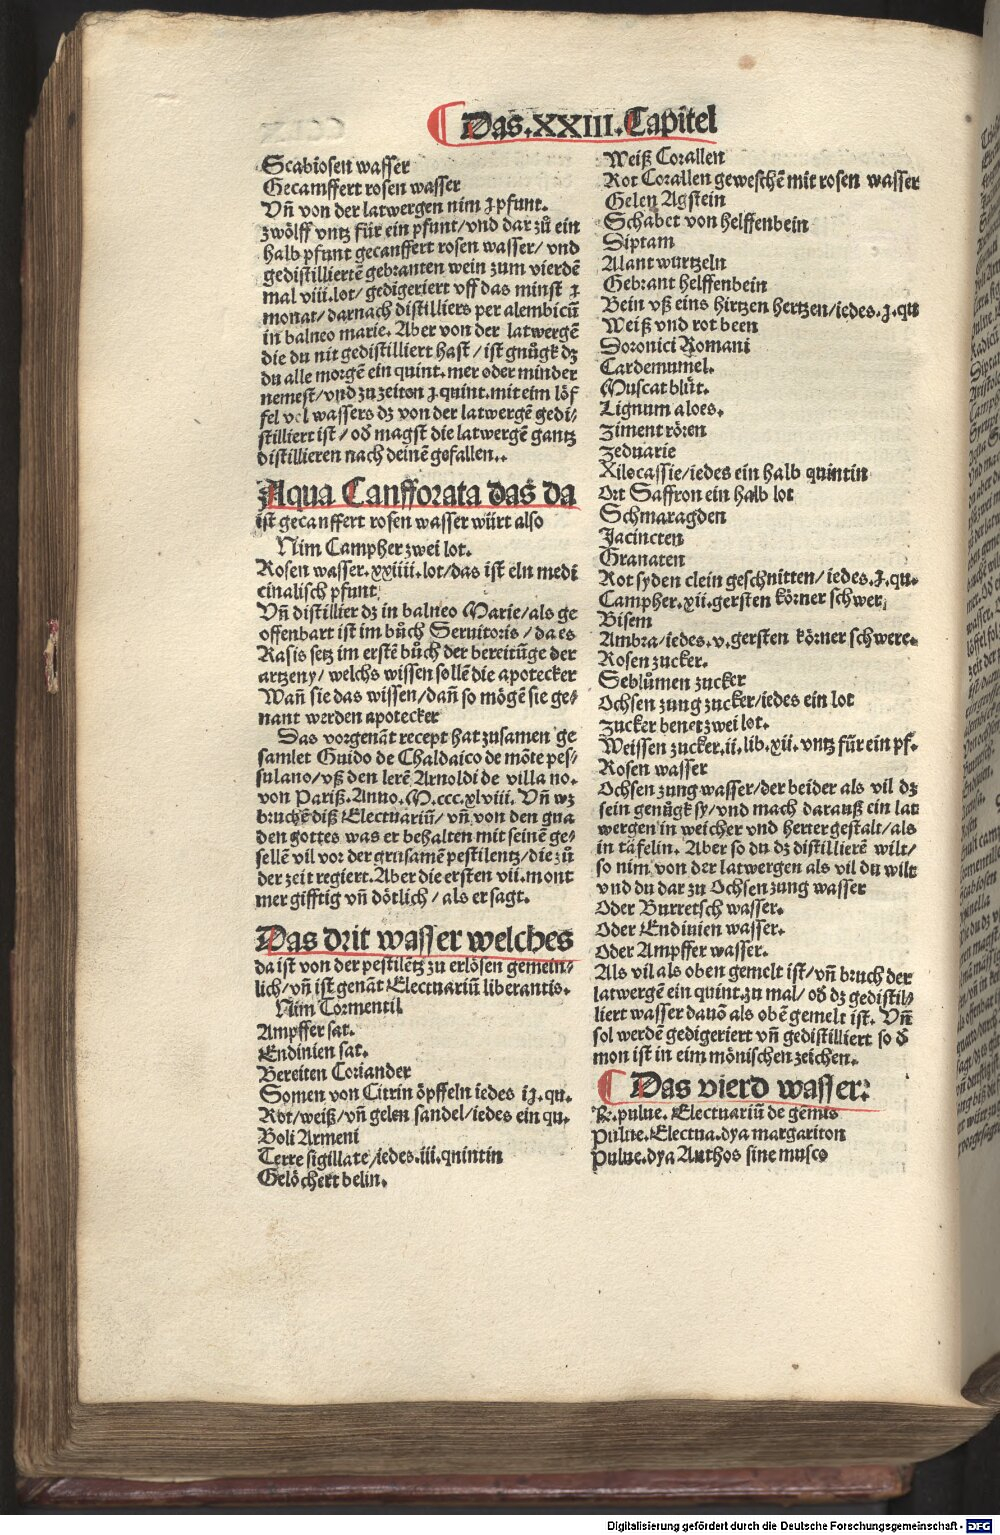 Das.XXIII.Capitel
Scabiosen wasser
Gecamffert rosen wasser
Vñ von der latwergen nim ʒ pfunt.
zwölff vntz für ein pfunt/vnd dar zů ein
halb pfunt gecanffert rosen wasser/ vnd
gedistillierte͂ gebranten wein zum vierde͂
mal viii.lot/ gedigeriert vff das minst ʒ
monat/ darnach distilliers per alembicu͂
in balneo marie. Aber von der latwerge͂
die du nit gedistilliert hast/ ist gnůgk dz
du alle morge͂ ein quint.mer oder minder
nemest/vnd zu zeiten ʒ quint.mit eim löf
fel vol wassers dz von der latwerge͂ gedi⸗
stilliert ist/ od̕ magst die latwerge͂ gantz
distillieren nach deine͂ gefallen..
Aqua Canfforata das da
ist gecanffert rosen wasser würt also
Nim Campher zwei lot.
Rosen wasser.xxiiii.lot/das ist eln medi
cinalisch pfunt
Vñ distillier dz in balneo Marie/als ge
offenbart ist im bůch Seruitoris/ da es
Rasis setz im erste͂ bůch der bereitu͂ge der
artzeny/ welchs wissen solle͂ die apotecker
Wañ sie das wissen/dañ so möge͂ sie ge⸗
nant werden apotecker
Das vorgena͂t recept hat zusamen ge
samlet Guido de Chaldaico de mo͂te pes⸗
sulano/vß den lere͂ Arnoldi de villa no.
von Pariß.Anno.M.ccc.xlviii. Vñ wz
bruche͂ diß Electuariu͂/ vñ von den gna
den gottes was er behalten mit seine͂ ge⸗
selle͂ vil vor der grusame͂ pestilentz/die zů
der zeit regiert.Aber die ersten vii.mont
mer gifftig vñ dötlich/ als er sagt.
Das drit wasser welches
da ist von der pestile͂tz zu erlösen gemein⸗
lich/vñ ist gena͂t Electuariu͂ liberantis.
Nim Tormentil
Ampffer sat.
Endinien sat.
Bereiten Coriander
Somen von Citrin öpffeln iedes iʒ.qu.
Rot/weiß/vñ gelen sandel/iedes ein qu.
Boli Armeni
Terre sigillate/iedes.iii.quintin
Gelöchert belin.
Weiß Corallen
Rot Corallen gewesche͂ mit rosen wasser
Gelen Agstein
Schabet von helffenbein
Diptam
Alant wurtzeln
Gebrant helffenbein
Bein vß eins hirtzen hertzen/iedes.ʒ.qu
Weiß vnd rot been
Doronici Romani
Cardemumel.
Muscat blüt.
Lignum aloes.
Ziment rören
Zeduarie
Xilocassie/iedes ein halb quintin
Ort Saffron ein halb lot
Schmaragden
Jacincten
Granaten
Rot syden clein geschnitten/ iedes.ʒ.qu.
Campher.xii.gersten körner schwer
Bisem
Ambra/iedes.v.gersten körner schwere.
Rosen zucker.
Seblůmen zucker
Ochsen zung zucker/iedes ein lot
Zucker benet zwei lot.
Weissen zucker.ii.lib.xii.vntz für ein pf.
Rosen wasser
Ochsen zung wasser/der beider als vil dz
sein genůgk sy/vnd mach darauß ein lat
wergen in weicher vnd herter gestalt/als
in täfelin. Aber so du dz distilliere͂ wilt/
so nim von der latwergen als vil du wilt
vnd du dar zu Ochsen zung wasser
Oder Burretsch wasser.
Oder Endinien wasser.
Oder Ampffer wasser.
Als vil als oben gemelt ist/vñ bruch der
latwerge͂ ein quint.zu mal/ od̕ dz gedistil⸗
liert wasser dauo͂ als obe͂ gemelt ist. Vñ
sol werde͂ gedigeriert vñ gedistilliert so d̕
mon ist in eim mönischen zeichen.
Das vierd wasser:
℞.pulue. Electuariu͂ de ge͂mis
Pulue.Electua.dya margariton
Pulue.dya Anthos sine musco
Digitalisierung gefördert durch die Deutsche Forschungsgemeinschaft - DFG